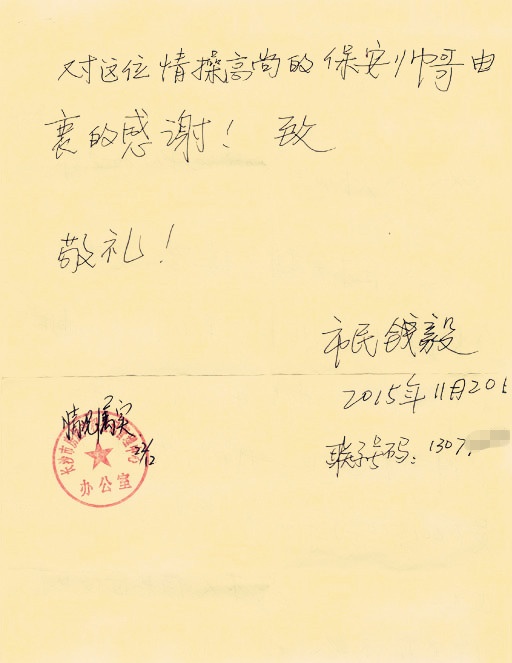 对这位情操高尚的保安帅哥由
衷的感谢！致
敬礼！
市民钱毅
2015年11月20日
联系号码：1307.
情况属实
长沙市
中心
办公室